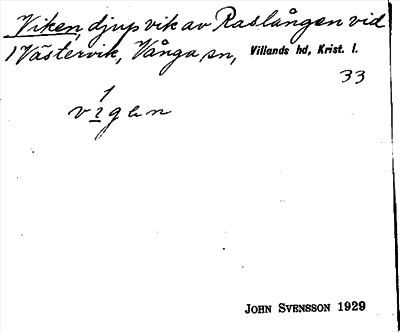 Viken, djup vik av Raslången vid
1 Västervik, Vånga sn, Villands hd, Krist. l.
33
1
vigen
JOHN SVENSSON 1929